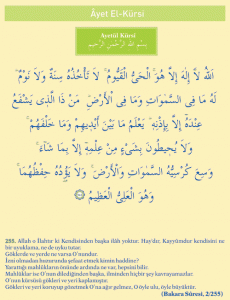 Âyet El-Kürsi
Ayetül Kürsi
بِسْمِ اللهِ الرَّحْمٰنِ الرَّحِيمِ
اَللهُ لَا اِلٰهَ اِلَّا هُوَۚ اَلْحَيُّ الْقَيُّومُۚ لَا تَأْخُذُهُ سِنَةٌ وَلَا نَوْمٌۜ
لَهُ مَا فِي السَّمٰوَاتِ وَمَا فِي الْاَرْضِۜ مَنْ ذَا الَّذِي يَشْفَعُ
عِنْدَهُٓ اِلَّا بِاِذْنِهِۜ يَعْلَمُ مَا بَيْنَ اَيْدِيهِمْ وَمَا خَلْفَهُمْۚ
وَلَا يُحِيطُونَ بِشَيْءٍ مِنْ عِلْمِهِٓ اِلَّا بِمَا شَٓاءَۚ
وَسِعَ كُرْسِيُّهُ السَّمٰوَاتِ وَالْاَرْضَۚ وَلَا يَؤُ۫دُهُ حِفْظُهُمَاۚ
وَهُوَ الْعَلِيُّ الْعَظِيمُ
255. Allah o İlahtır ki Kendisinden başka ilah yoktur. Hay'dır, Kayyûmdur kendisini ne
bir uyuklama, ne de uyku tutar.
Göklerde ve yerde ne varsa O'nundur.
İzni olmadan huzurunda şefaat etmek kimin haddine?
Yarattığı mahlûkların önünde ardında ne var, hepsini bilir.
Mahlûklar ise O'nun dilediğinden başka, ilminden hiçbir şey kavrayamazlar.
O'nun kürsüsü gökleri ve yeri kaplamıştır.
Gökleri ve yeri koruyup gözetmek O'na ağır gelmez, O öyle ulu, öyle büyüktür.
(Bakara Sûresi, 2/255)